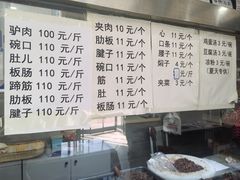 驴肉 100 元/斤
碗口 110 元/斤
肚儿 110 元/斤
板肠 110 元/斤
蹄筋 110 元/斤
肋板 110 元/斤
腱子 110 元/斤
夹肉 10 元/个
肋板 11 元/个
腱子 11 元/个
碗口 11 元/个
筋 11 元/个
肚 11 元/个
板肠 11 元/个
心 11 元/个
口条 11 元/个
腰子 11 元/个
焖子
元/个
夹菜 3 元/个
鸡蛋汤 3 元/碗
豆腐汤 3 元/碗
凉粉 3 元/碗
(夏天专供)